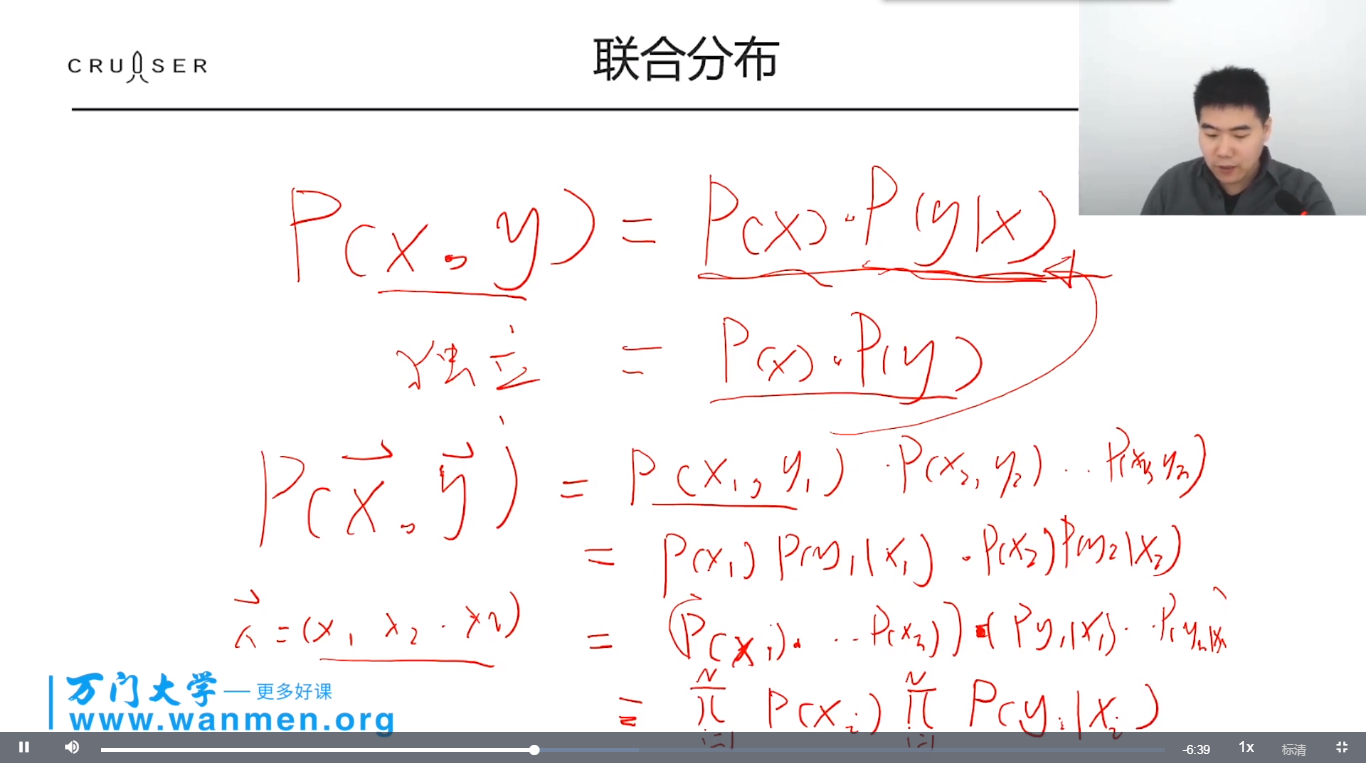 CRUISER
联合分布
P(x, y) = P(x)·P(y|x)
独立 = P(x)·P(y)
P(x⃗, y⃗) = P(x₁, y₁)·P(x₂, y₂)··P(xₙ, yₙ)
= P(x₁) P(y₁|x₁)·P(x₂)P(y₂|x₂)
x⃗ = (x₁ x₂ · xₙ)
= (P(x₁)···P(xₙ))·(P(y₁|x₁)··P(yₙ|xₙ)
= ∏ᵢ₌₁ᴺ P(xᵢ) ∏ᵢ₌₁ᴺ P(yᵢ|xᵢ)
万门大学 — 更多好课
www.wanmen.org
-6:39 1x 标清